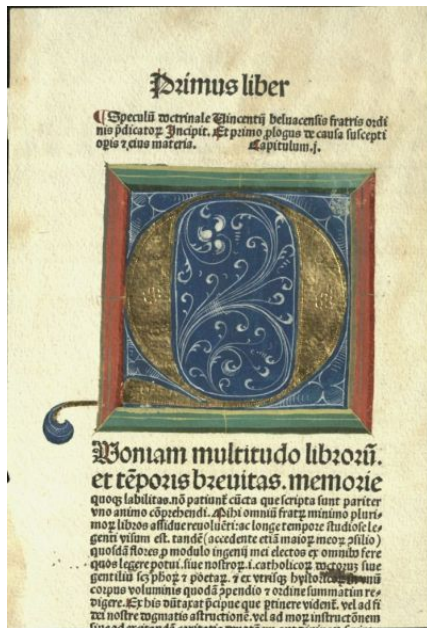 Primus liber
¶ Speculū doctrinale Uincentij beluacensis fratris ordi
nis p̄dicatoꝝ Incipit. Et primo ꝓlogus de causa suscepti
oꝑis ⁊ eius materia. Capitulum.j.
Q
Uoniam multitudo libroꝝ.
et tēporis breuitas. memorie
quoqꝫ labilitas. nō patiunt̄ cūcta que scripta sunt pariter
vno animo cōprehendi. Mihi omniū fratꝝ minimo pluri-
moꝝ libros assidue reuoluēti: ac longe tempore studiose le-
genti visum est. tandē (accedente etiā maioꝝ meoꝝ ꝯsilio)
quosdā flores ꝓ modulo ingenij mei electos ex omnibꝰ fere
quos legere potui. siue nostroꝝ .i. catholicoꝝ doctoꝝ siue
gentiliū sc̄ ph̄oꝝ ⁊ poetaꝝ. ⁊ ex vtrisqꝫ hystoricoꝝ in vnū
corpus voluminis quodā ꝯpendio ⁊ ordine summatim re-
digere. Ex his dūtaxat p̄cipue que ꝑtinere vident̄. vel ad fi
dei nostre dogmatis astructionē. vel ad moꝝ instructōnem